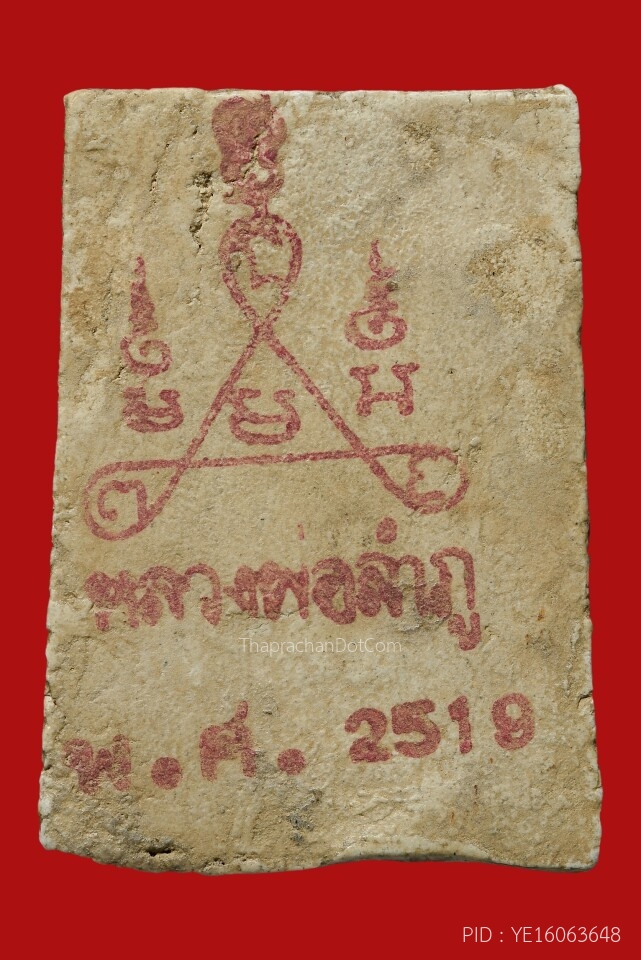 หลวงพ่อลำภู
ThaprachanDotCom
พ.ศ. 2519
PID : YE16063648